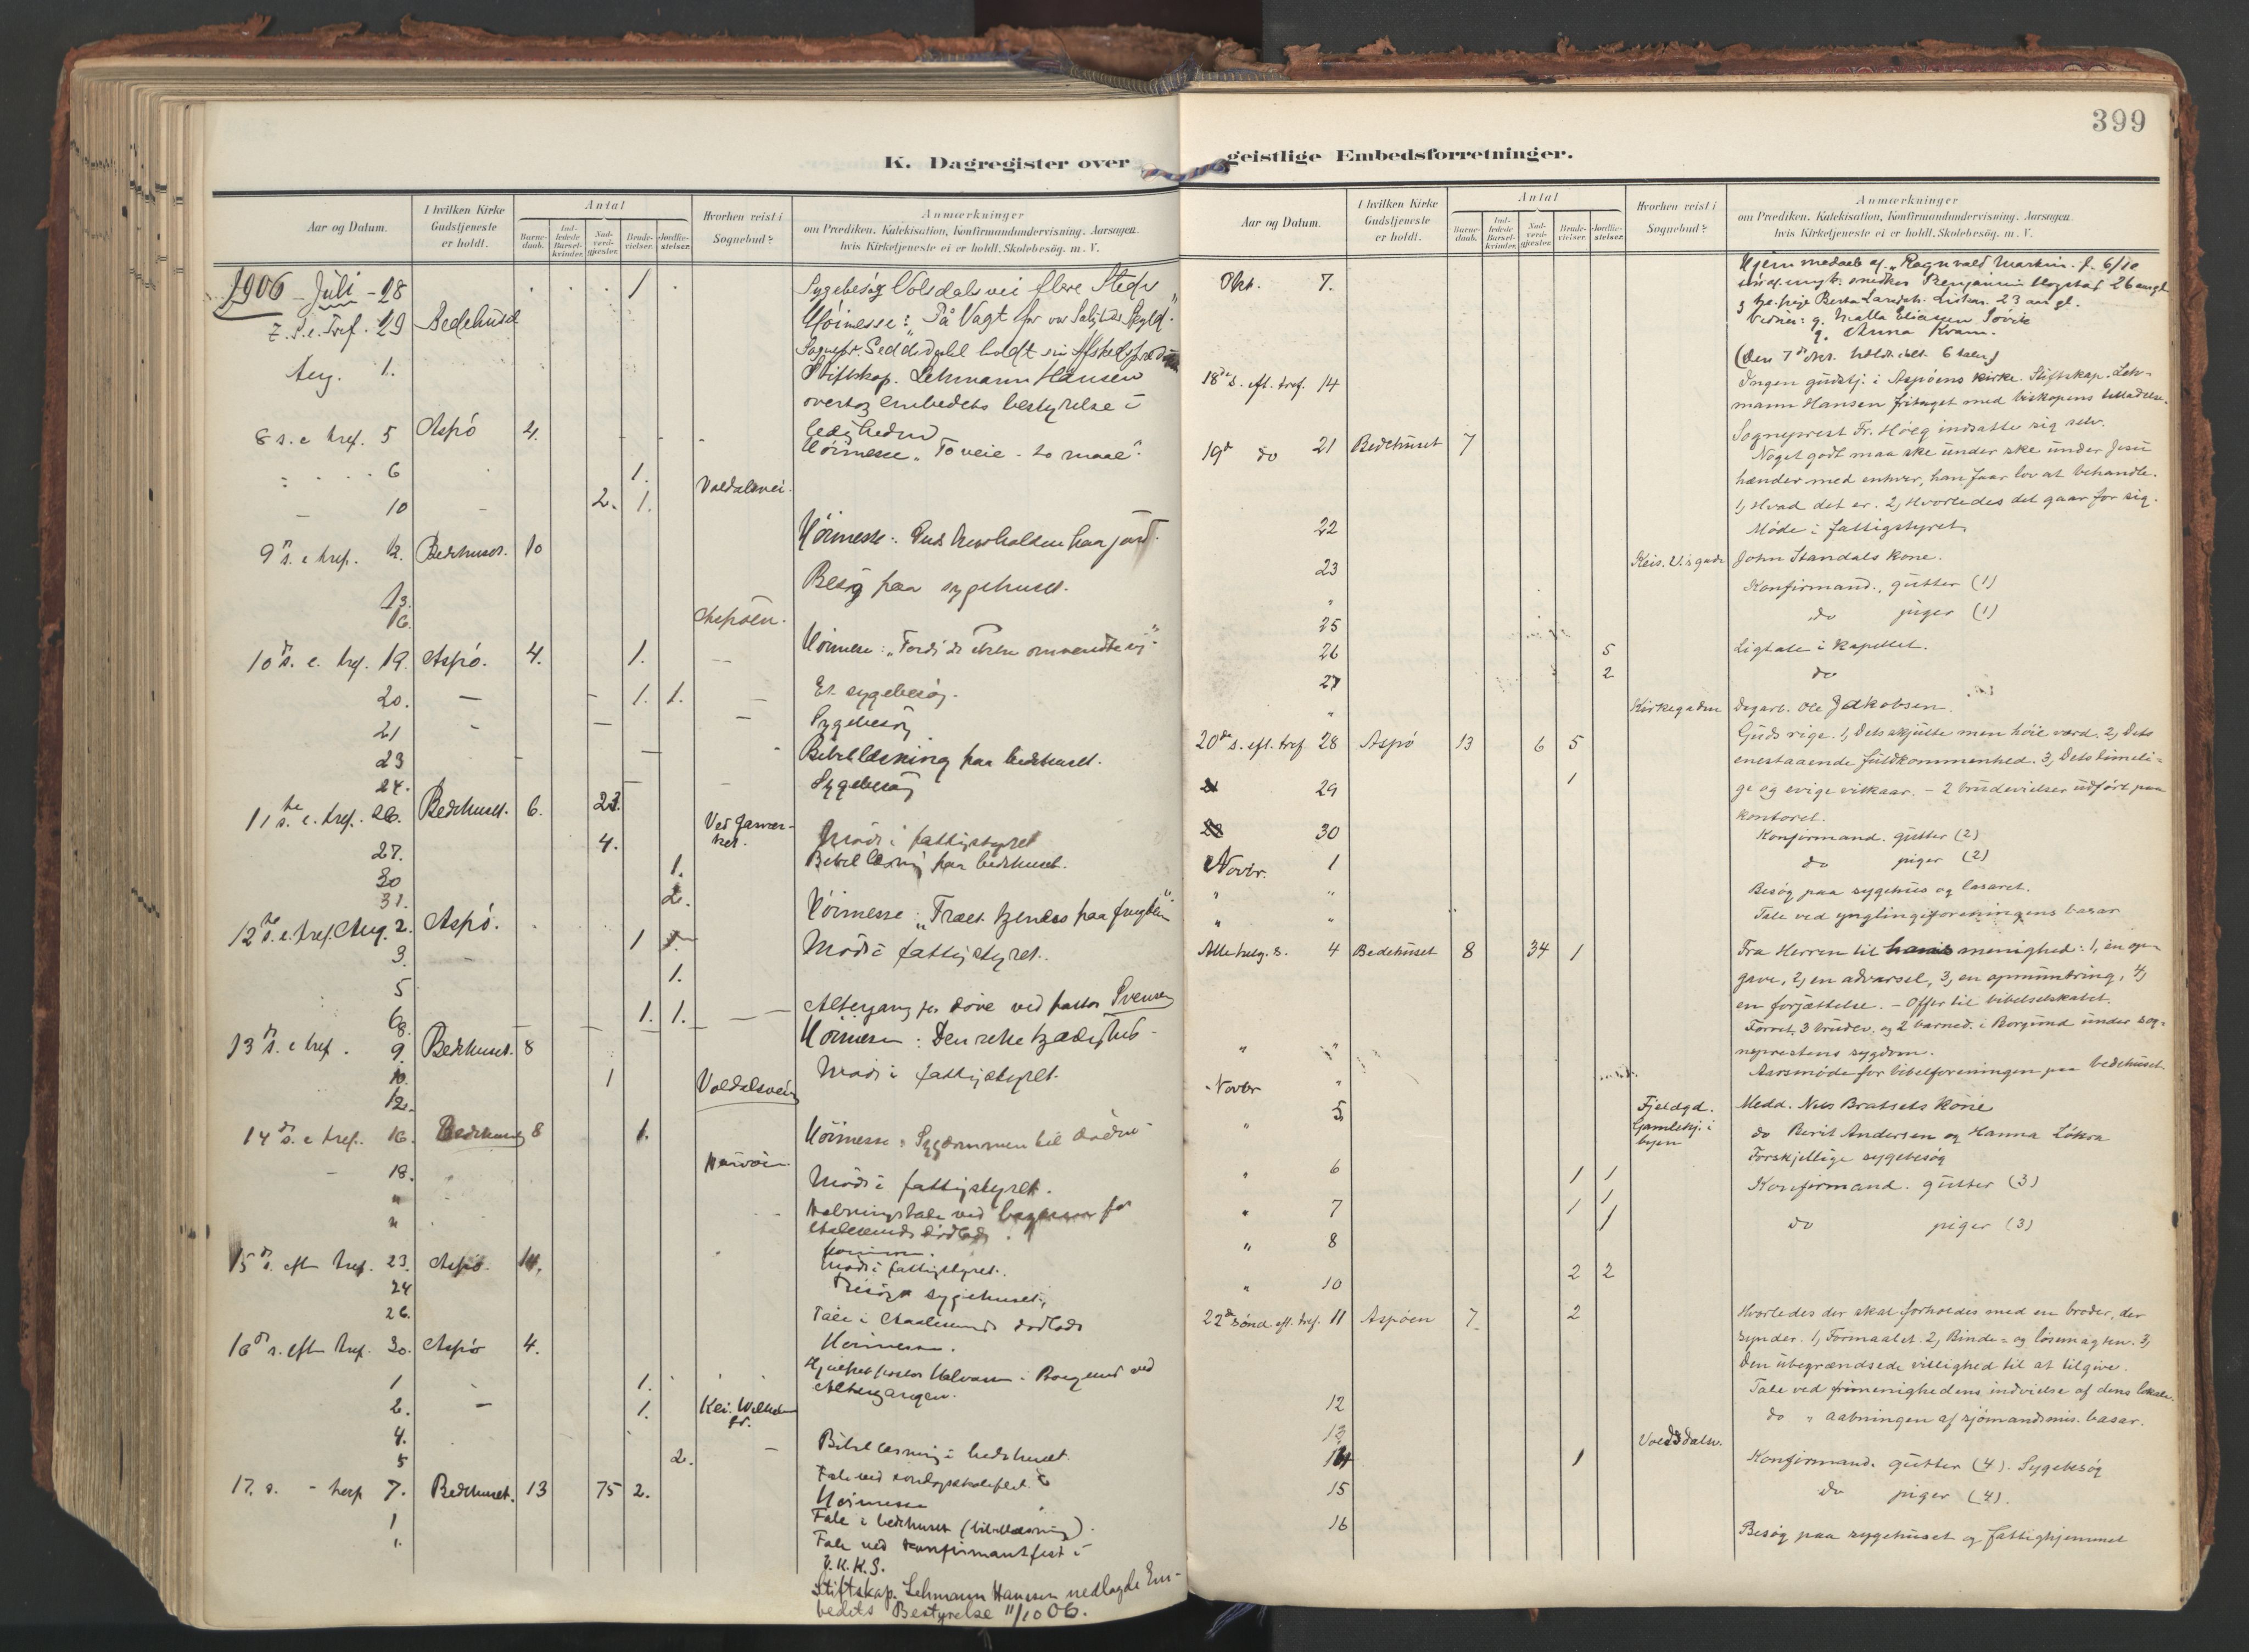 399
K. Dagregister over geistlige Embedsforretninger.
Aar og Datum. I hvilken Kirke Gudstjeneste er holdt. Antal Barne-daab. Ind-ledede Barsel-kvinder. Nad-verd-gjester. Brude-vielser. Jordfæ-stelser. Hvorhen reist i Sognebud? Anmærkninger om Prædiken, Katekisation, Konfirmandundervisning. Aarsagen hvis Kirketjeneste ei er holdt, Skolebesög. m. V.
1906 - Juli - 28 1 Sygebesög Volsdalsvei flere Steder
7. S. e. Tref. 29 Bedehuset Höimesse: "På Vagt for vor
Sognepr. Seddedahl holdt sin Afskedspræd
Aug. 1. Stiftskap. Lehmann Hansen
overtog embedets bestyrelse i
ledigheden
8 s. e tref. 5 Aspö 4. Höimesse "To veie - to maal".
6 1.
10 2. 1. Voldalsvei.
9 s. e tref. 12. Bedehuset. 10 Höimesse:
13. Besög paa sygehuset.
16. Aspöen.
10 s. e. tref. 19. Aspö. 4. 1. Höimesse: "Fordi de ikke omvendte sig"
20. 1. 1. Et sygebesög.
21 Sygebesög
23 Bibellæsning paa bedehuset.
24. Sygebesög
11 te s. e. tref. 26. Bedehuset. 6. 23.
27. 4. Möde i fattigstyret
30 1. Bibellæsning paa bedehuset.
31. 2.
12 te s. e. tref. Aug. 2. Aspö. Höimesse: "Træet kjendes paa frugten"
3. 1 Möde i fattigstyret.
5 1.
6 1. 1. Altergang for döve ved pastor Svensen
8.
13 s. e tref. 9. Bedehuset. 8 Höimesse: Den rette kjærlighed
10. 1 Voldalsvei Möde i fattigstyret.
12.
14 s. e tref. 16. Bedehuset 8 1. Höimesse: Sygdommen til döden
18. Möde i fattigstyret.
" Aabningstale ved for
" Aalesunds
15 s. eft tref. 23. Aspö. 14.
24 Möde i fattigstyret.
26. Besög sygehuset.
Tale i Aalesunds
16 s. eft tref. 30. Aspö 4. Höimesse.
1 1. i Borgund ved
Altergangen.
2. 1. Kei. Wilhelms gt.
4.
5 2. Bibellæsning i bedehuset.
17. s. - tref 7. Bedehuset. 13 75 2. Tale ved söndagsskolefest
Höimesse
1 Tale i bedehuset (bibellæsning).
Tale ved konfirmantfest i
U.K.K.S.
Stiftskap. Lehmann Hansen nedlagde Em-
bedets Bestyrelse 11/10 06.
Aar og Datum. I hvilken Kirke Gudstjeneste er holdt. Antal Barne-daab. Ind-ledede Barsel-kvinder. Nad-verd-gjester. Brude-vielser. Jordfæ-stelser. Hvorhen reist i Sognebud? Anmærkninger om Prædiken, Katekisation, Konfirmandundervisning. Aarsagen hvis Kirketjeneste ei er holdt, Skolebesög. m. V.
Okt. 7. Hjemmedaab af "Ragnvald Martin f. 6/10
snedker Benjamin 26 aar gl
Berta 23 aar gl.
Vidner: g. Malla Eliassen Sövik
g. Anna Kvam.
(Den 7de okt. holdt 6 taler)
18de s. eft. tref. 14 Ingen gudstj. i Aspöens kirke. Stiftskap. Leh-
mann Hansen fritaget med biskopens tilladelse.
Sogneprest Fr. Höeg indsatte sig selv.
19de do 21 Bedehuset 7 Noget godt maa ske under ske under Jesu
hænder med enhver, han faar lov at behandle.
1, Hvad det er. 2, Hvorledes det gaar for sig.
22 Möde i fattigstyret
23 Keis. V.s gade John Standals kone.
" Konfirmand., gutter (1)
25 do piger (1)
26 5 Ligtale i kapellet.
27 2 do
" Kirkegaden Dagarb. Ole Jakobsen.
20de s. eft. tref 28 Aspö 13 6 5 Guds rige. 1, Dets skjulte men höie værd. 2, Dets
enestaaende fuldkommenhed. 3, Dets timeli-
29 1 ge og evige vilkaar. - 2 brudevielser udfört paa
kontoret.
30 Konfirmand. gutter (2)
Novbr. 1 do piger (2)
" " Besög paa sygehus og lasaret.
" " Tale ved ynglingeforeningens basar
Allehelg. s. 4 Bedehuset 8 34 1 Fra Herren til menighed: 1, en op-
gave, 2, en advarsel, 3, en opmuntring, 4,
en forjættelse. - Offer til bibelselskabet.
Forret. 3 brudev. og 2 barned. i Borgund under sog-
neprestens sygdom.
" " Aarsmöde for bibelforeningen paa bedehuset
Novbr " Fjeldgd. Medd. Nils Bratsets kone
" 5 Gamlehj. i byen do Berit Andersen og Hanna Löksa
Forskjellige sygebesög
" 6 1 1 Konfirmand. gutter (3)
" 7 1 1 do piger (3)
" 8 1
" 10 2 2
22de sönd. eft. tref. 11 Aspöen 7 2 Hvorledes der skal forholdes med en broder, der
synder. 1, Formaalet. 2, Binde- og lösenøglen. 3,
Den ubegrændsede villighed til at tilgive.
Tale ved frimenighedens indvielse af dens lokale.
12 do " aabningen af sjömandsmis. basar.
13 Voldsdalsv.
14 1 Konfirmand. gutter (4). Sygebesög
15 do piger (4).
16 Besög paa sygehuset og fattighjemmet